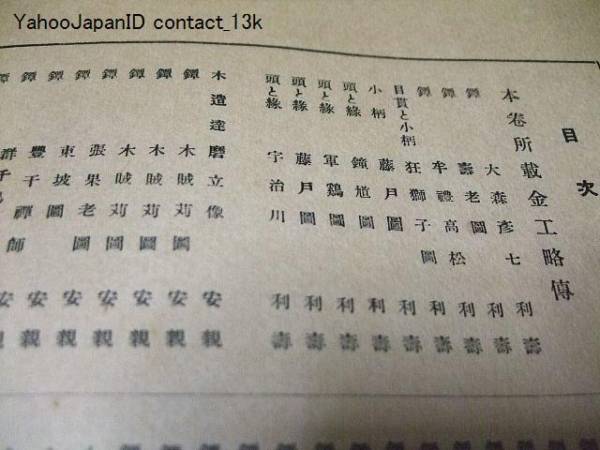 YahooJapanID contact_13k
目次
本卷所載金工略傳
鐔 大森彥七 利壽
鐔 壽老圖 利壽
鐔 牟禮高松 利壽
目貫と小柄 狂獅子圖 利壽
小柄 藤月圖 利壽
頭と緣 鐘馗圖 利壽
頭と緣 軍鷄圖 利壽
頭と緣 藤月圖 利壽
頭と緣 宇治川 利壽
木造達磨立像 安親
鐔 木賊苅圖 安親
鐔 木賊苅圖 安親
鐔 木賊苅圖 安親
鐔 張果老圖 安親
鐔 東坡圖 安親
鐔 豐干禪師 安親